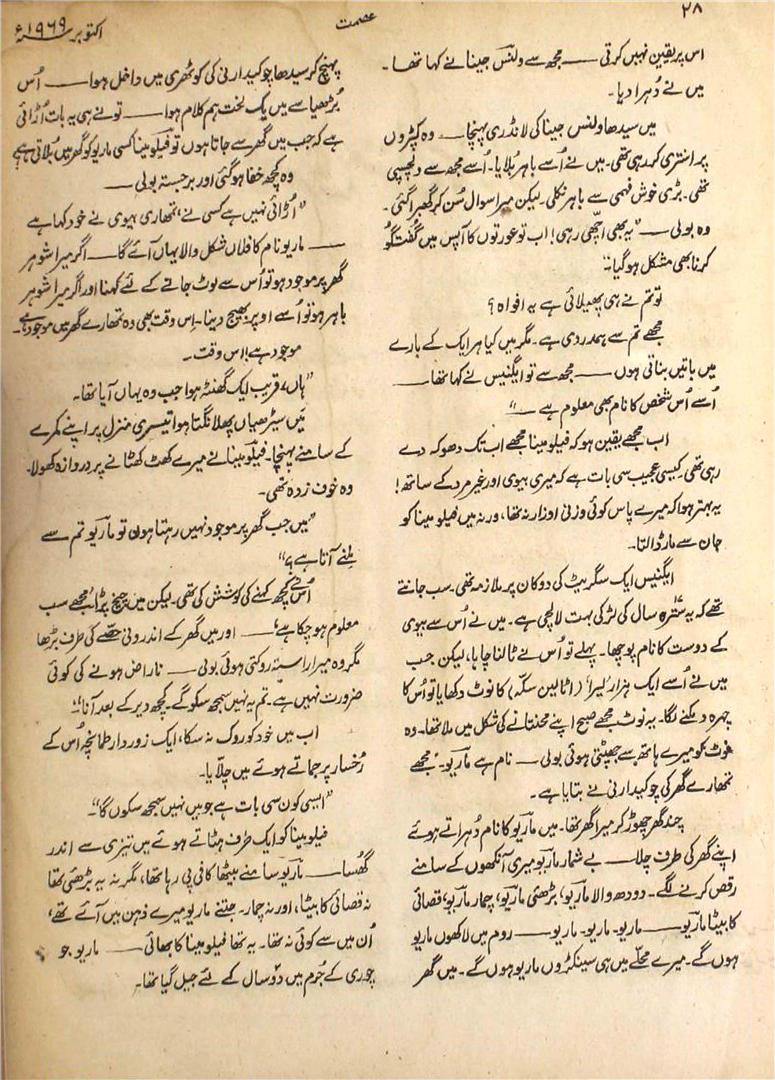 ۲۸
عصمت
اکتوبر ۱۹۶۹ء
اس پر یقین نہیں کرتی — مجھ سے ولنس جینا نے کہا تھا۔
میں نے دُہرا دیا۔
میں سیدھا ولنس جینا کی لانڈری پہنچا — وہ کپڑوں
پر استری کر رہی تھی۔ میں نے اُسے باہر بُلایا۔ اُسے مجھ سے دلچسپی
تھی۔ بڑی خوش فہمی سے باہر نکلی۔ لیکن میرا سوال سُن کر گھبرا گئی۔
وہ بولی — "یہ بھی اچھی رہی! اب تو عورتوں کا آپس میں گفتگو
کرنا بھی مشکل ہو گیا"
تو تم نے ہی پھیلائی ہے یہ افواہ؟
مجھے تم سے ہمدردی ہے۔ مگر میں کیا ہر ایک کے بارے
میں باتیں بناتی ہوں — مجھ سے تو ایگنیس نے کہا تھا —
اُسے اُس شخص کا نام بھی معلوم ہے —"
اب مجھے یقین ہو کہ فیلومینا مجھے اب تک دھوکہ دے
رہی تھی۔ کیسی عجیب سی بات ہے کہ میری بیوی اور غیر مرد کے ساتھ!
یہ بہتر ہوا کہ میرے پاس کوئی وزنی اوزار نہ تھا، ورنہ میں فیلومینا کو
جان سے مار ڈالتا۔
ایگنیس ایک سگریٹ کی دوکان پر ملازمہ تھی۔ سب جانتے
تھے کہ یہ سترہ سال کی لڑکی بہت لالچی ہے۔ میں نے اُس سے بیوی
کے دوست کا نام پوچھا۔ پہلے تو اُس نے ٹالنا چاہا، لیکن جب
میں نے اُسے ایک ہزار 'لیرا' (اٹالین سکّہ) کا نوٹ دکھایا تو اُس کا
چہرہ دمکنے لگا۔ یہ نوٹ مجھے صبح اپنے محنتانے کی شکل میں ملا تھا۔ وہ
نوٹ کو میرے ہاتھ سے چھینتی ہوئی بولی — نام ہے ماریو۔ مجھے
تمھارے گھر کی چوکیدارنی نے بتایا ہے۔
چند گھر چھوڑ کر میرا گھر تھا۔ میں ماریو کا نام دُہراتے ہوئے
اپنے گھر کی طرف چلا — بے شمار ماریو میری آنکھوں کے سامنے
رقص کرنے لگے۔ دودھ والا ماریو، بڑھئی ماریو، چمار ماریو، قصائی
کا بیٹا ماریو — ماریو۔ ماریو۔ ماریو — روم میں لاکھوں ماریو
ہوں گے۔ میرے محلّے میں ہی سینکڑوں ماریو ہوں گے۔ میں گھر
پہنچ کر سیدھا چوکیدارنی کی کوٹھری میں داخل ہوا — اُس
بُڑھیا سے میں یک لخت ہم کلام ہوا — تو نے ہی یہ بات اُڑائی
ہے کہ جب میں گھر سے جاتا ہوں تو فیلومینا کسی ماریو کو گھر میں بُلاتی ہے؟
وہ کچھ خفا ہو گئی اور برجستہ بولی —
"اُڑائی نہیں ہے کسی نے، تمھاری بیوی نے خود کہا ہے
— ماریو نام کا فلاں شکل والا یہاں آئے گا — اگر میرا شوہر
گھر پر موجود ہو تو اُس سے لوٹ جانے کے لئے کہنا اور اگر میرا شوہر
باہر ہو تو اُسے اوپر بھیج دینا۔ اِس وقت بھی وہ تمھارے گھر میں موجود ہے۔
موجود ہے! اس وقت۔
"ہاں، قریب ایک گھنٹہ ہوا جب وہ یہاں آیا تھا۔
میں سیڑھیاں پھلانگتا ہوا تیسری منزل پر اپنے کمرے
کے سامنے پہنچا۔ فیلومینا نے میرے کھٹ کھٹانے پر دروازہ کھولا۔
وہ خوف زدہ تھی۔
"میں جب گھر پر موجود نہیں رہتا ہوں تو ماریو تم سے
ملنے آتا ہے؟"
اُس نے کچھ کہنے کی کوشش کی تھی۔ لیکن میں چیخ پڑا "مجھے سب
معلوم ہو چکا ہے" — اور میں گھر کے اندرونی حصّے کی طرف بڑھا
مگر وہ میرا راستہ روکتی ہوئی بولی — ناراض ہونے کی کوئی
ضرورت نہیں ہے۔ تم یہ نہیں سمجھ سکو گے۔ کچھ دیر کے بعد آنا!"
اب میں خود کو روک نہ سکا، ایک زوردار طمانچہ اُس کے
رُخسار پر جماتے ہوئے میں چِلّایا۔
"ایسی کون سی بات ہے جو میں نہیں سمجھ سکوں گا"۔
فیلومینا کو ایک طرف ہٹاتے ہوئے میں تیزی سے اندر
گھُسا — ماریو سامنے بیٹھا کافی پی رہا تھا، مگر نہ یہ بڑھئی تھا
نہ قصائی کا بیٹا، اور نہ چمار۔ جتنے ماریو میرے ذہن میں آئے تھے،
اُن میں سے کوئی نہ تھا۔ یہ تھا فیلومینا کا بھائی — ماریو جو
چوری کے جُرم میں دو سال کے لئے جیل گیا تھا۔